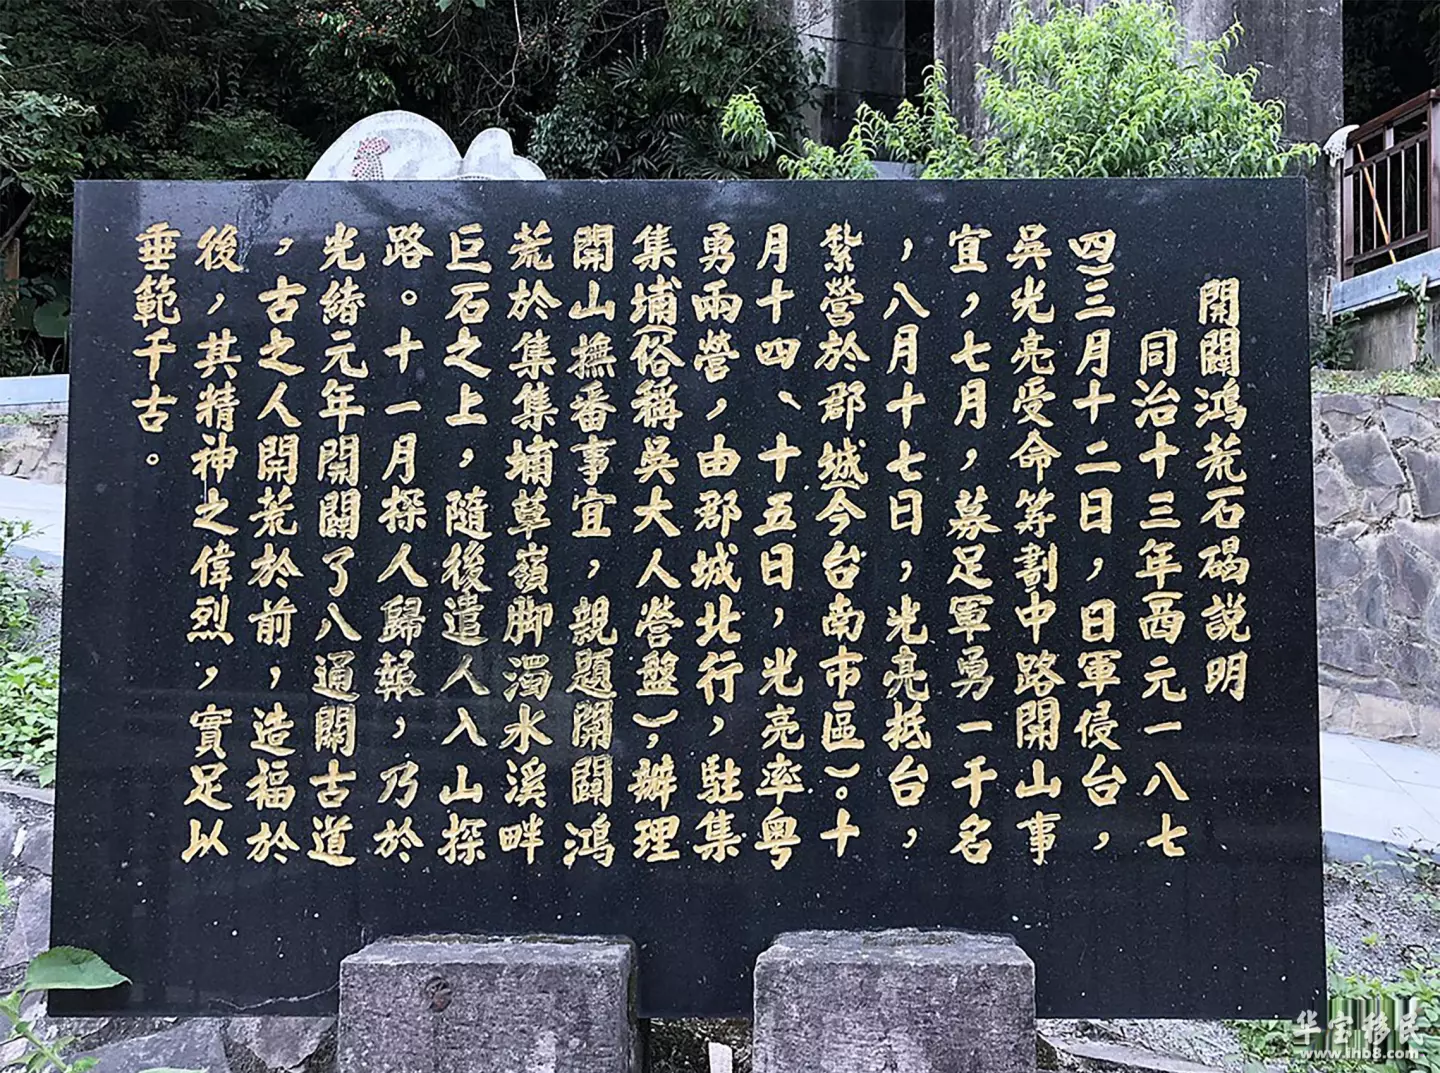 開闢鴻荒石碣說明
同治十三年(西元一八七
四)三月十二日，日軍侵台，
吳光亮受命籌劃中路開山事
宜，七月，募足軍勇一千名
，八月十七日，光亮抵台，
紮營於郡城(今台南市區)。十
月十四、十五日，光亮率粵
勇兩營，由郡城北行，駐集
集埔(俗稱吳大人營盤)，辦理
開山撫番事宜，親題開闢鴻
荒於集集埔草嶺腳濁水溪畔
巨石之上，隨後遣人入山探
路。十一月探人歸報，乃於
光緒元年開闢了八通關古道
，古之人開荒於前，造福於
後，其精神之偉烈，實足以
垂範千古。
华宝移民
www.lhb8.com